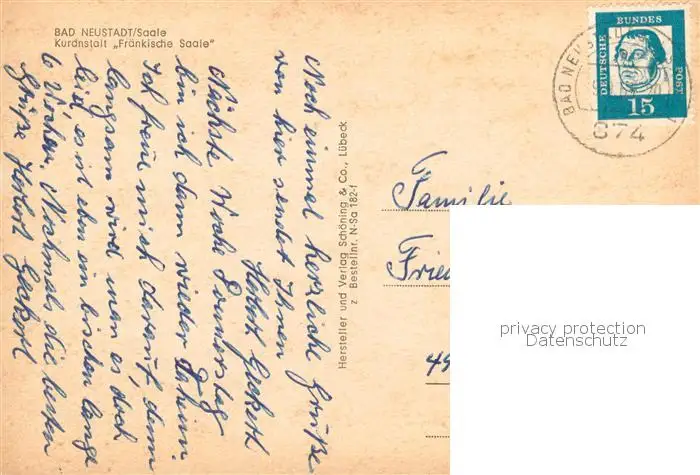 BAD NEUSTADT/Saale
Kuranstalt „Fränkische Saale"
Noch einmal herzliche Grüße
von hier sendet Ihnen
Herbert
Nächste Woche Donnerstag
bin ich dann wieder Daheim.
Ich freue mich darauf, denn
langsam wird man es doch
leid, es ist eben ein bischen lange
6 Wochen. Nochmals die besten
Grüße Herbert
Hersteller und Verlag Schöning & Co., Lübeck
z Bestellnr. N-Sa 182-f
DEUTSCHE BUNDES POST
15
BAD NEU
874
Familie
Fried
49
privacy protection
Datenschutz